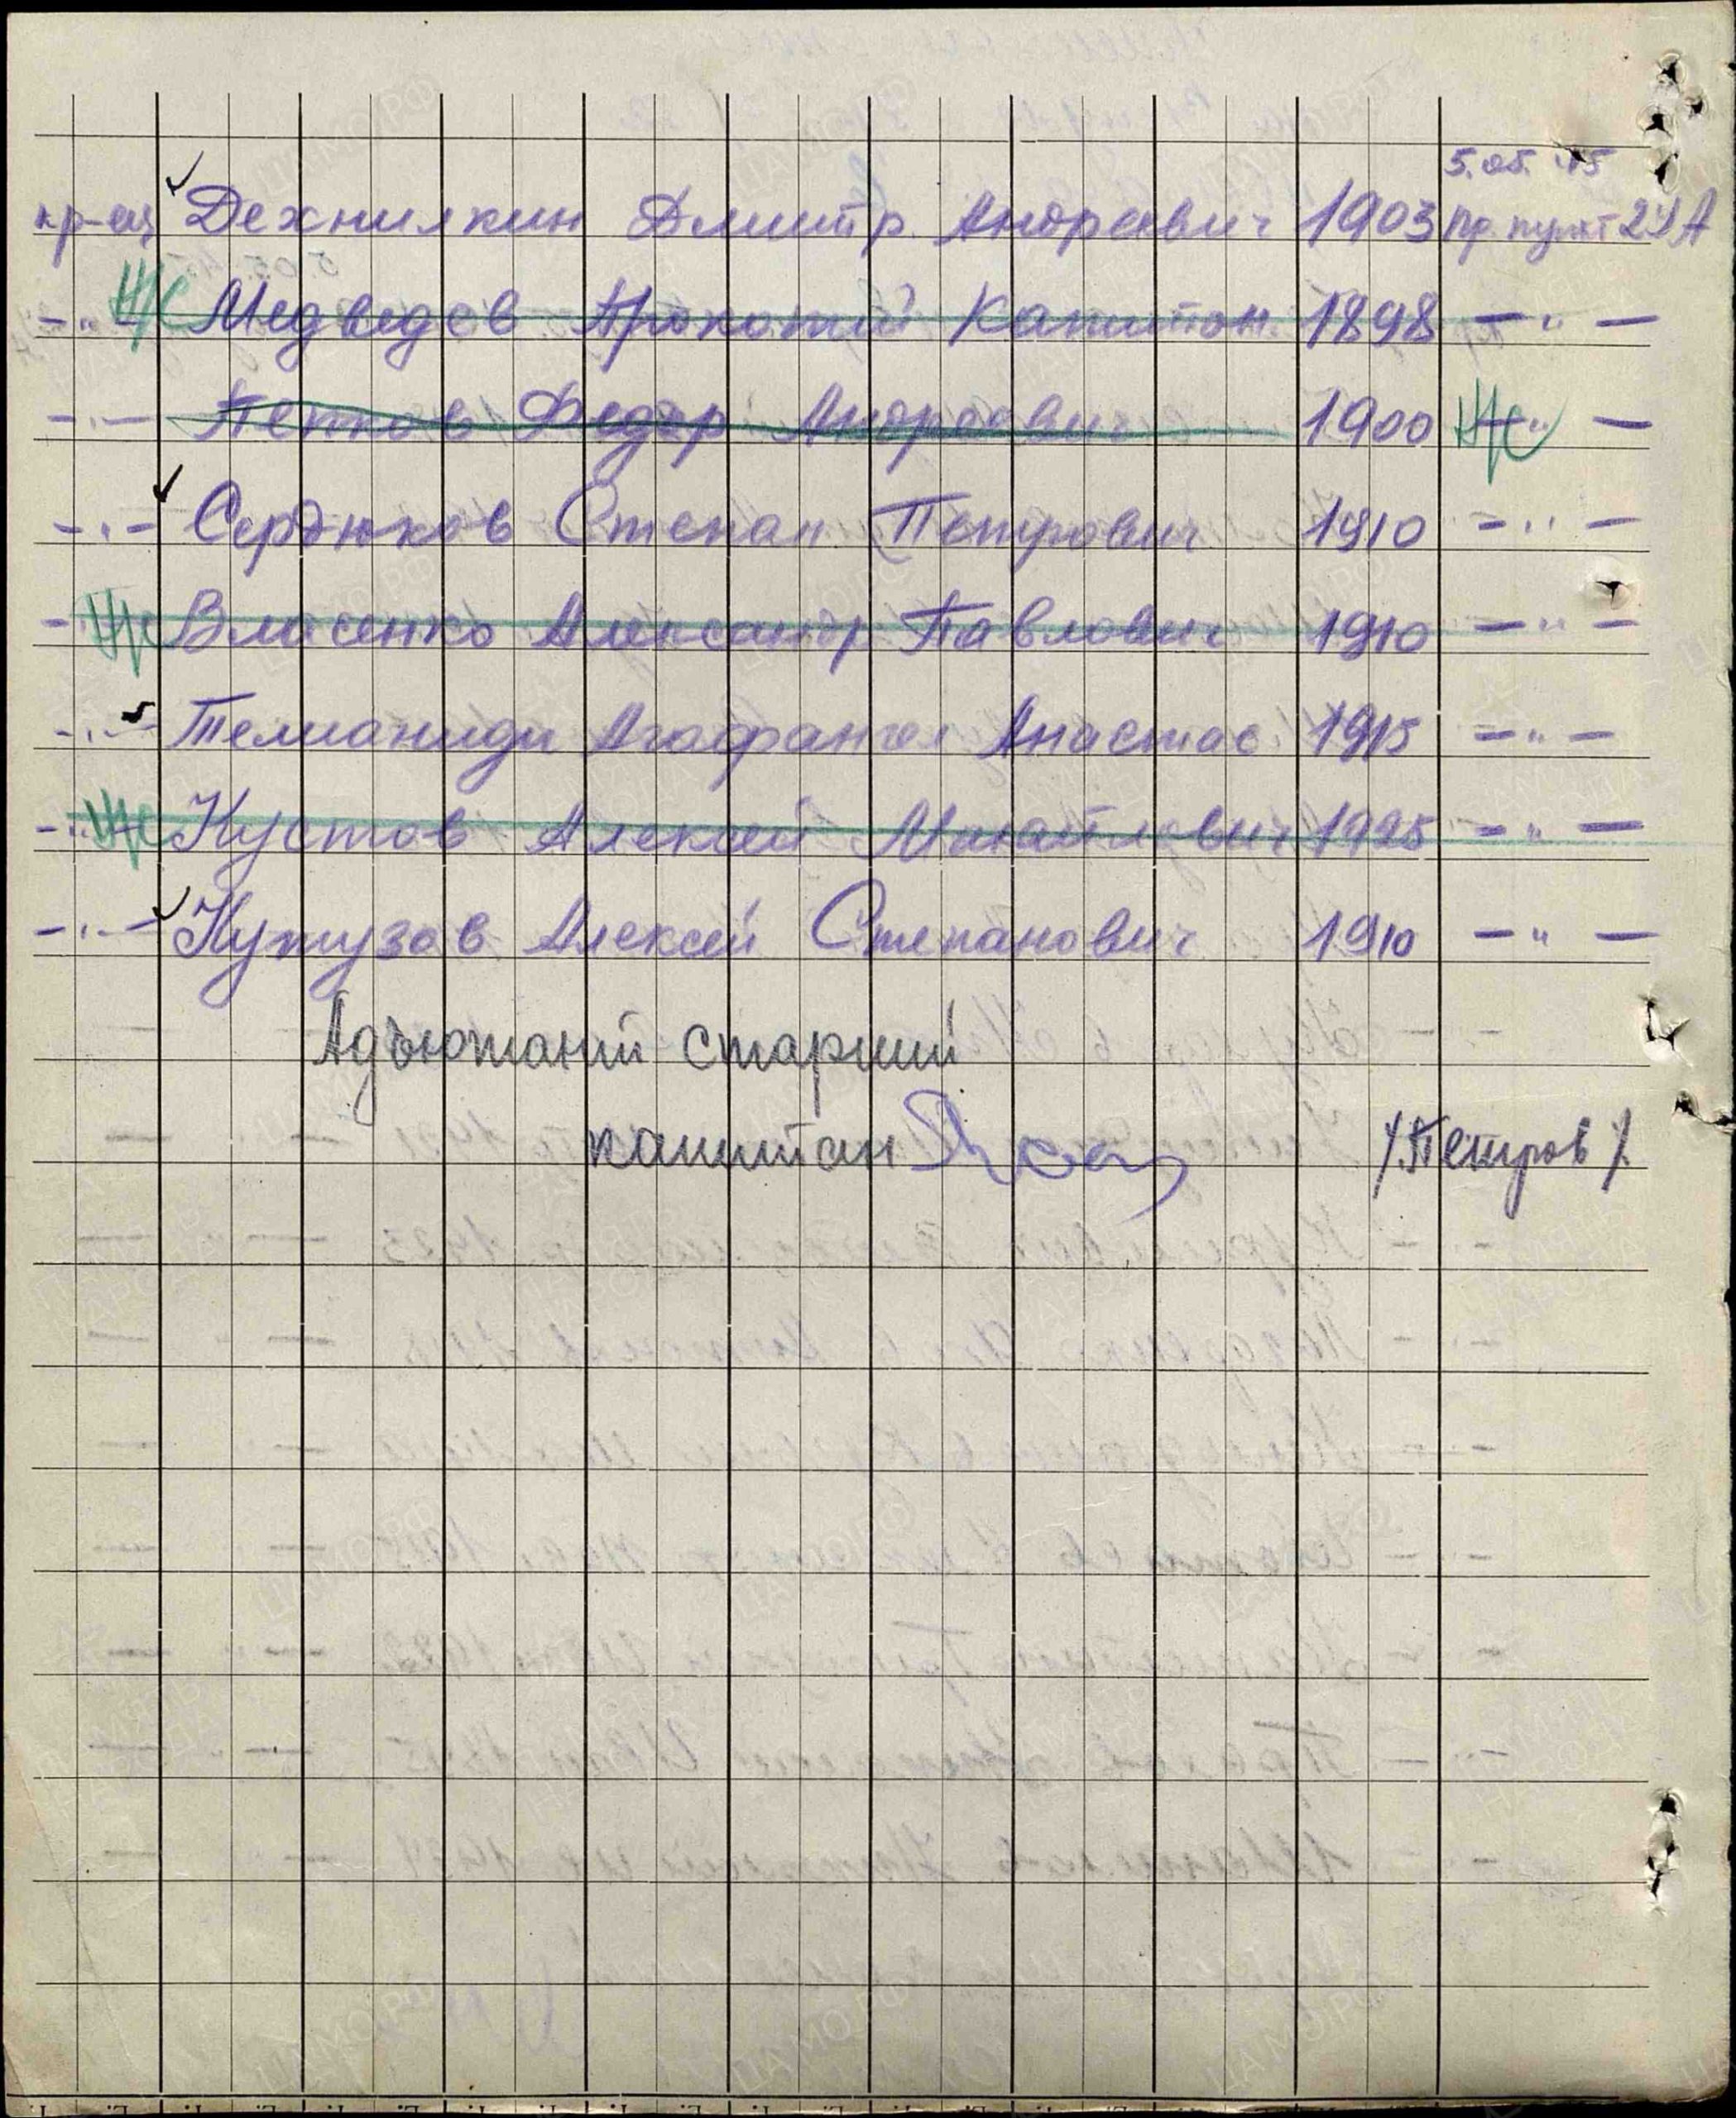 5.05.45
кр-ец Дехнилкин Дмитр. Андреевич 1903 пр. пункт 21 А
-"- Медведев Прокопий Капитон. 1898 -"-
-"- Пенков Федор Андреевич 1900 -"-
-"- Сердюков Степан Петрович 1910 -"-
-"- Власенко Александр Павлович 1910 -"-
-"- Темианиди Агафангел Анастас. 1915 -"-
-"- Кустов Алексей Михайлович 1925 -"-
-"- Кутузов Алексей Степанович 1910 -"-
Адъютант старший
капитан /Петров/